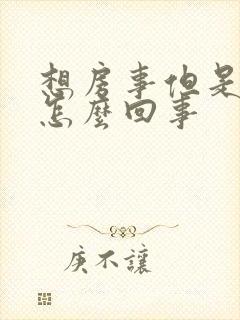 想房事但是
怎麼回事
庚不讓